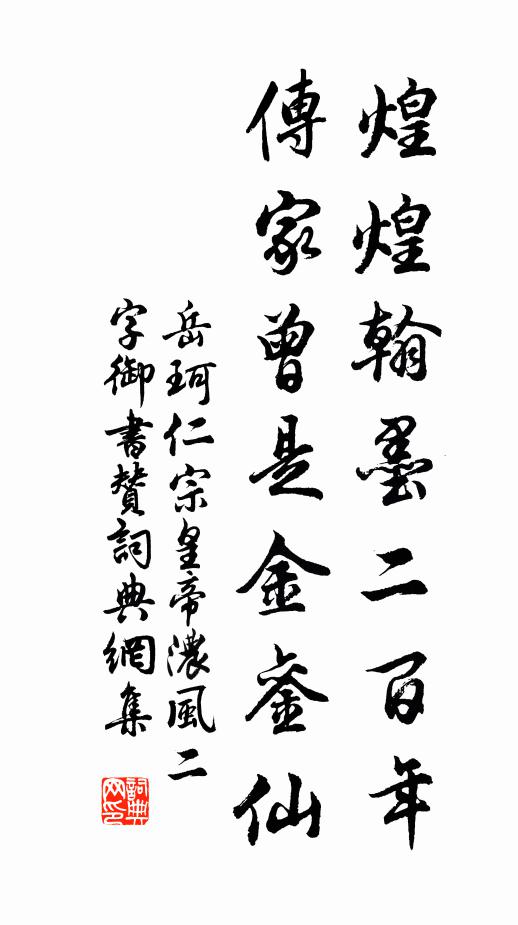 煌煌翰墨二百年
傳家曾是金銮仙
岳珂仁宗皇帝濃風二
字御書贊詞典網集
詞典网印